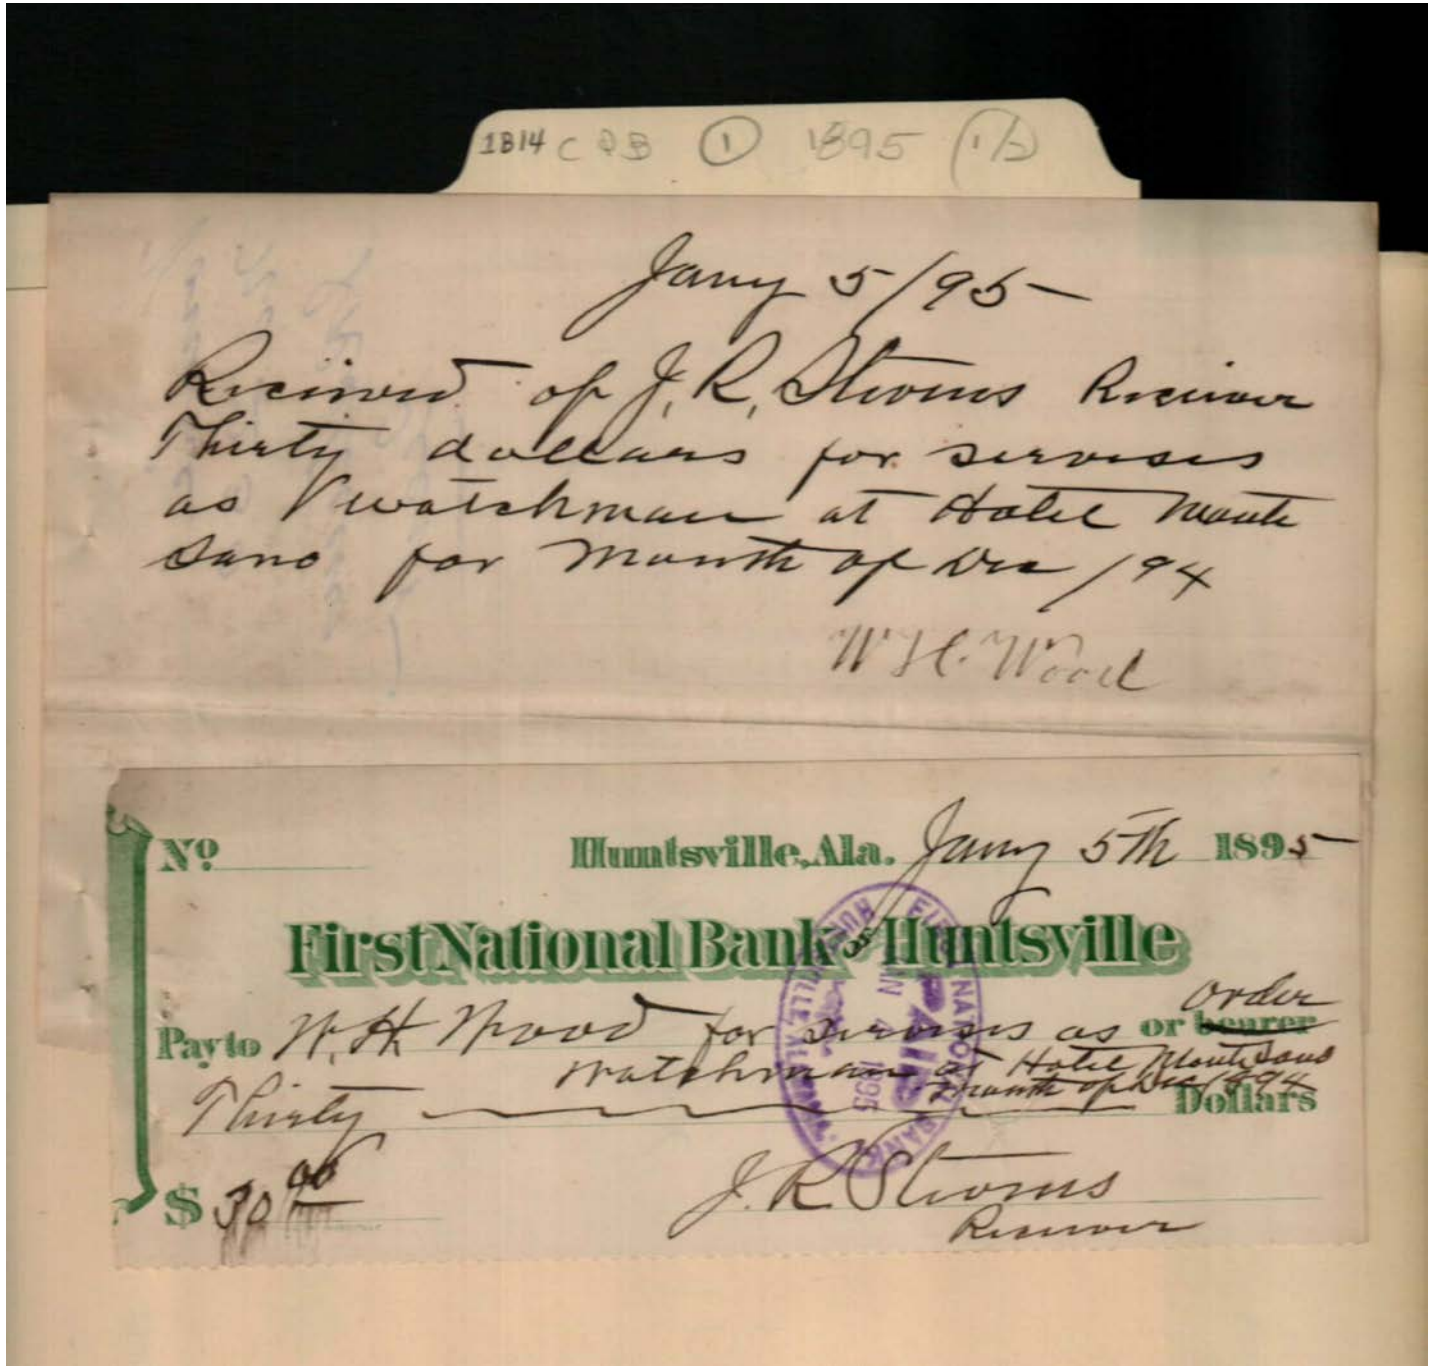 1B14 C 1 1895 (1/2)
Jany 5/95
Received of J. R. Stevens Receiver
Thirty dollars for servises
as watchman at Hotel Monte
Sano for Month of Dec /94
W H. Wood
No
Huntsville, Ala. Jany 5th 1895
First National Bank of Huntsville
order
Pay to W. H. Wood for servises as or bearer
watchman at Hotel Monte Sano
month of Dec 1894
Thirty Dollars
$ 30 00
J. R. Stevens
Receiver
FIRST NATIONAL BANK
HUNTSVILLE, ALABAMA
PAID
JAN 4 1895